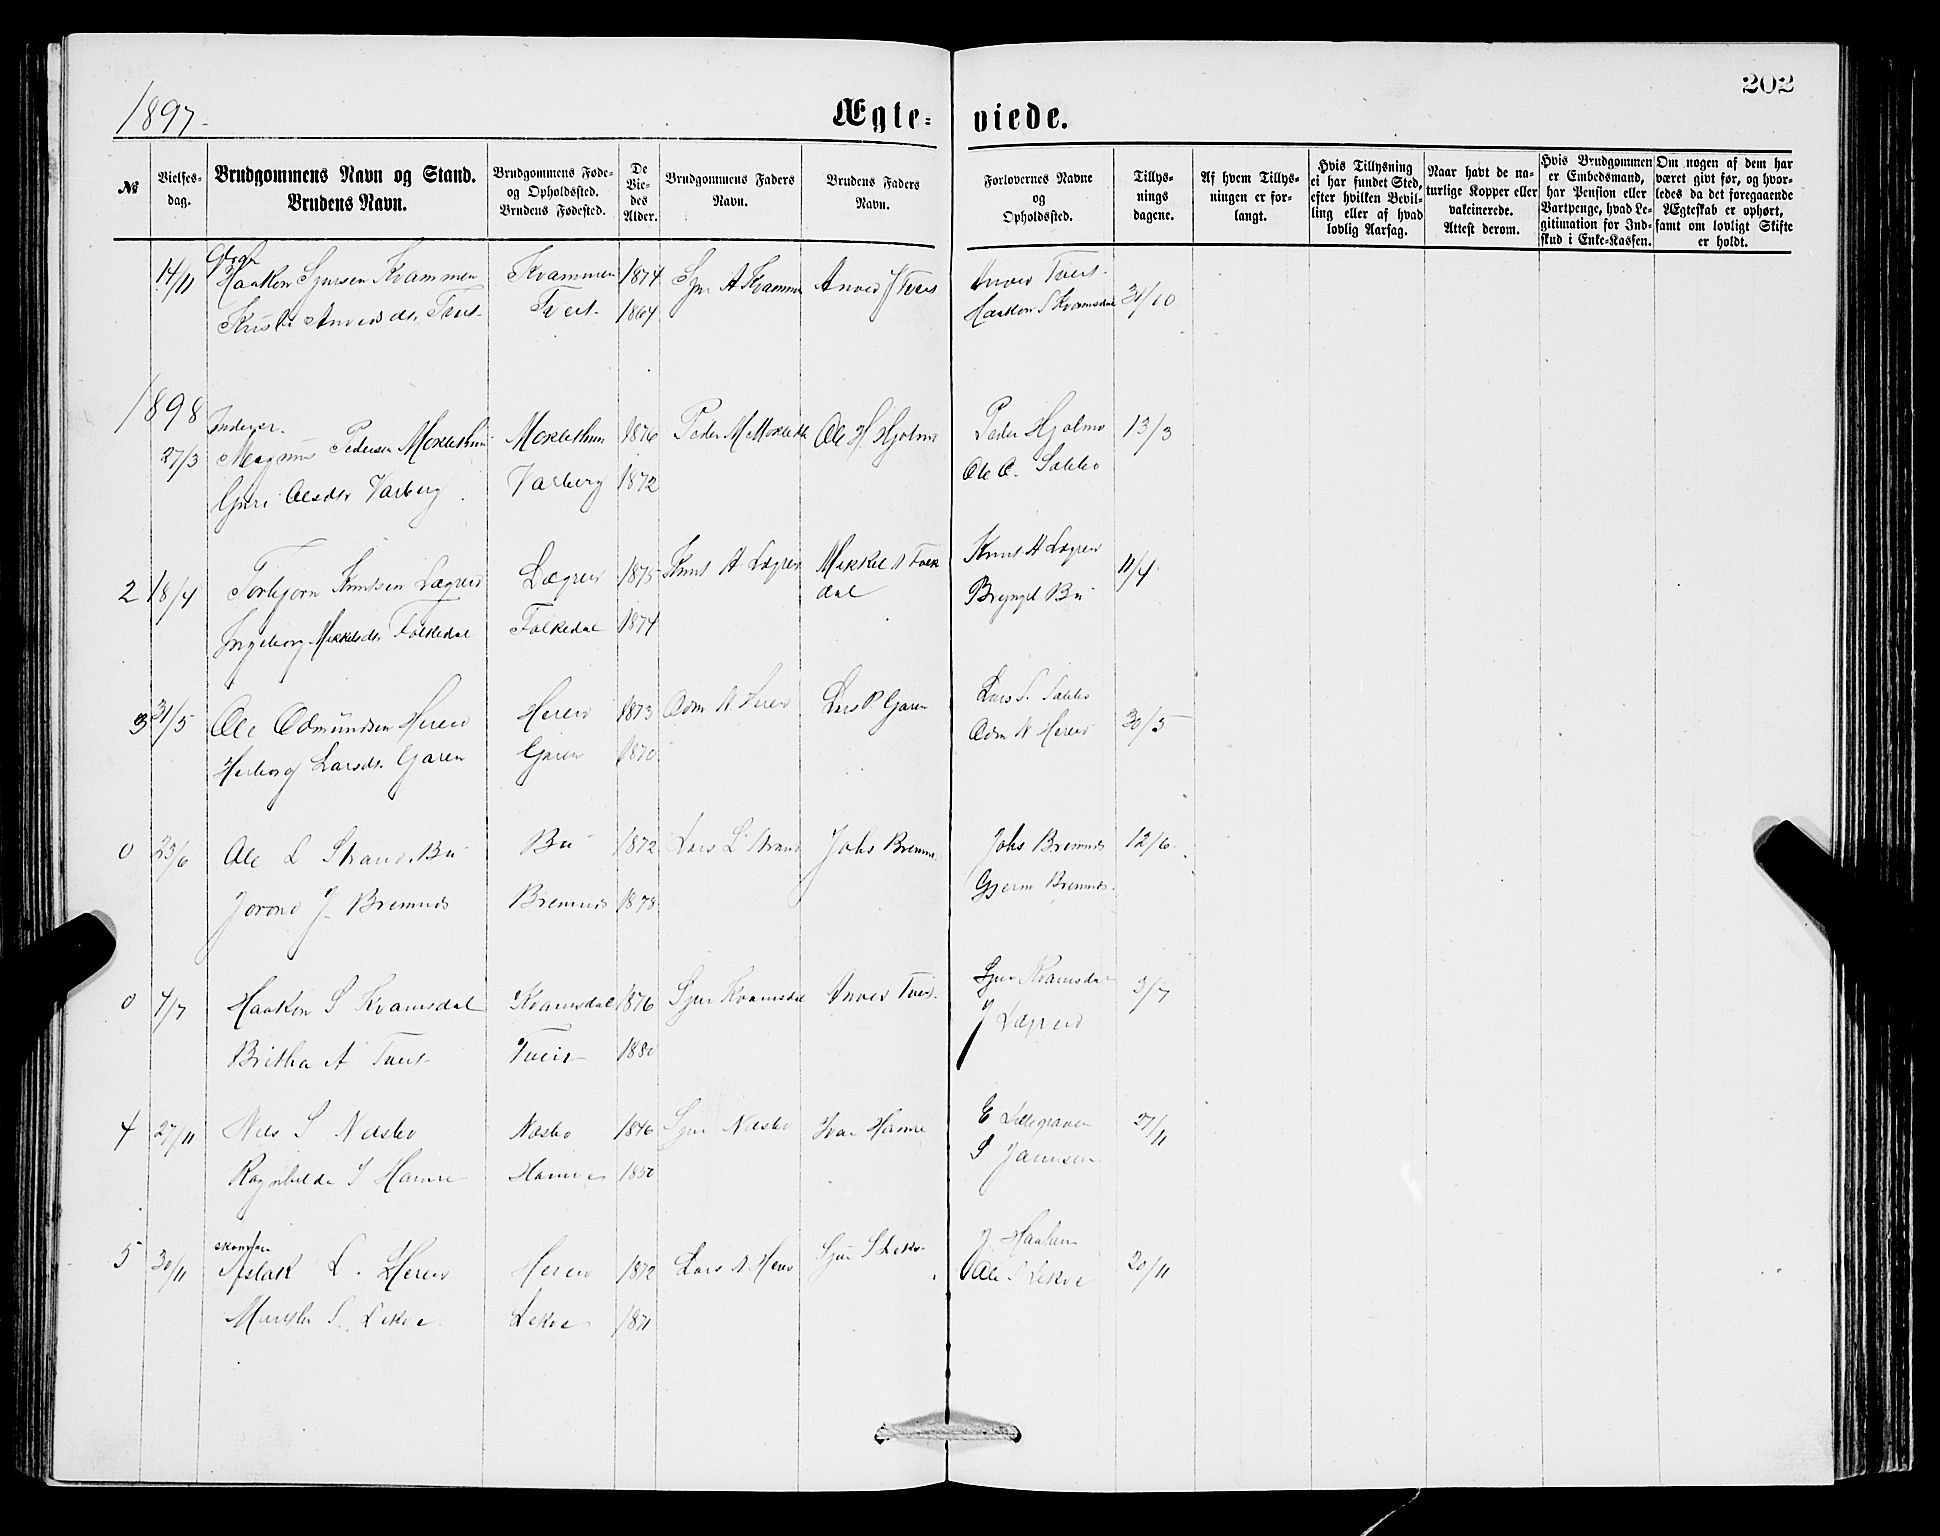 202
1897.
Ægteviede.
№
Vielsesdag.
Brudgommens Navn og Stand.
Brudens Navn.
Brudgommens Føde-
og Opholdssted.
Brudens Fødested.
De
Vie-
des
Alder.
Brudgommens Faders
Navn.
Brudens Faders
Navn.
Forlovernes Navne
og
Opholdssted.
Tillys-
nings
dagene.
Af hvem Tillys-
ningen er for-
langt.
Hvis Tillysning
ei har fundet Sted,
efter hvilken Bevil-
ling eller af hvad
lovlig Aarsag.
Naar havt de na-
turlige Kopper eller
vakcinerede.
Attest derom.
Hvis Brudgommen
er Embedsmand,
har Pension eller
Vartpenge, hvad Le-
gitimation for Ind-
skud i Enke-Kassen.
Om nogen af dem har
været givt før, og hvor-
ledes da det foregaaende
Ægteskab er ophørt,
samt om lovligt Skifte
er holdt.
14/11 Haakon Sjursen Kvammen Kvammen 1874 Sjur A Kvammen Anved Tveit Anved Tveit
Anvedsdr. Tveit Tveit 1864 Haakon S Kvamsdal 31/10
1898
27/3 Magnus Pedersen Moklethun 1876 Peder M Ole H Hjolmo Peder Hjolmo 13/3
Guri Olsdtr Varberg Varberg 1872 Ole O. Sæbbo
2 18/4 Torbjørn Knutsen Lægreid Lægreid 1875 Knut A Lægreid Mikkel N Folkedal Knut A Lægreid 11/4
Ingeborg Mikkelsdr Folkedal Folkedal 1874 Bryngel Bu
3 31/5 Ole Odmundsen Hereid Hereid 1873 Odm N Hereid Lars P Garen Lars S. Sæbbo 30/5
Herborg Larsdr. Garen Garen 1870 Odm N Hereid
0 23/6 Ole L Strand. Bu Bu 1872 Lars L Strand Johs Bremnes Johs Bremnes 12/6
Jorond J Bremnes Bremnes 1878 Gjerm Bremnes
0 4/7 Haakon S Kvamsdal Kvamsdal 1876 Sjur Kvamsdal Anved Tveit Sjur Kvamsdal 3/7
Britha A Tveit Tveit 1880 J Lægreid
4 27/11 Nils S Næsbo Næsbo 1846 Sjur Næsbo Ivar Hamre E Lillegraven 27/11
Ragnhilda I Hamre Hamre 1850 S
5 30/11 Aslak L. Hereid Hereid 1872 Lars A Hereid Sjur S Lekve J 20/11
Martha S. Lekve Lekve 1871 Ole S Lekve